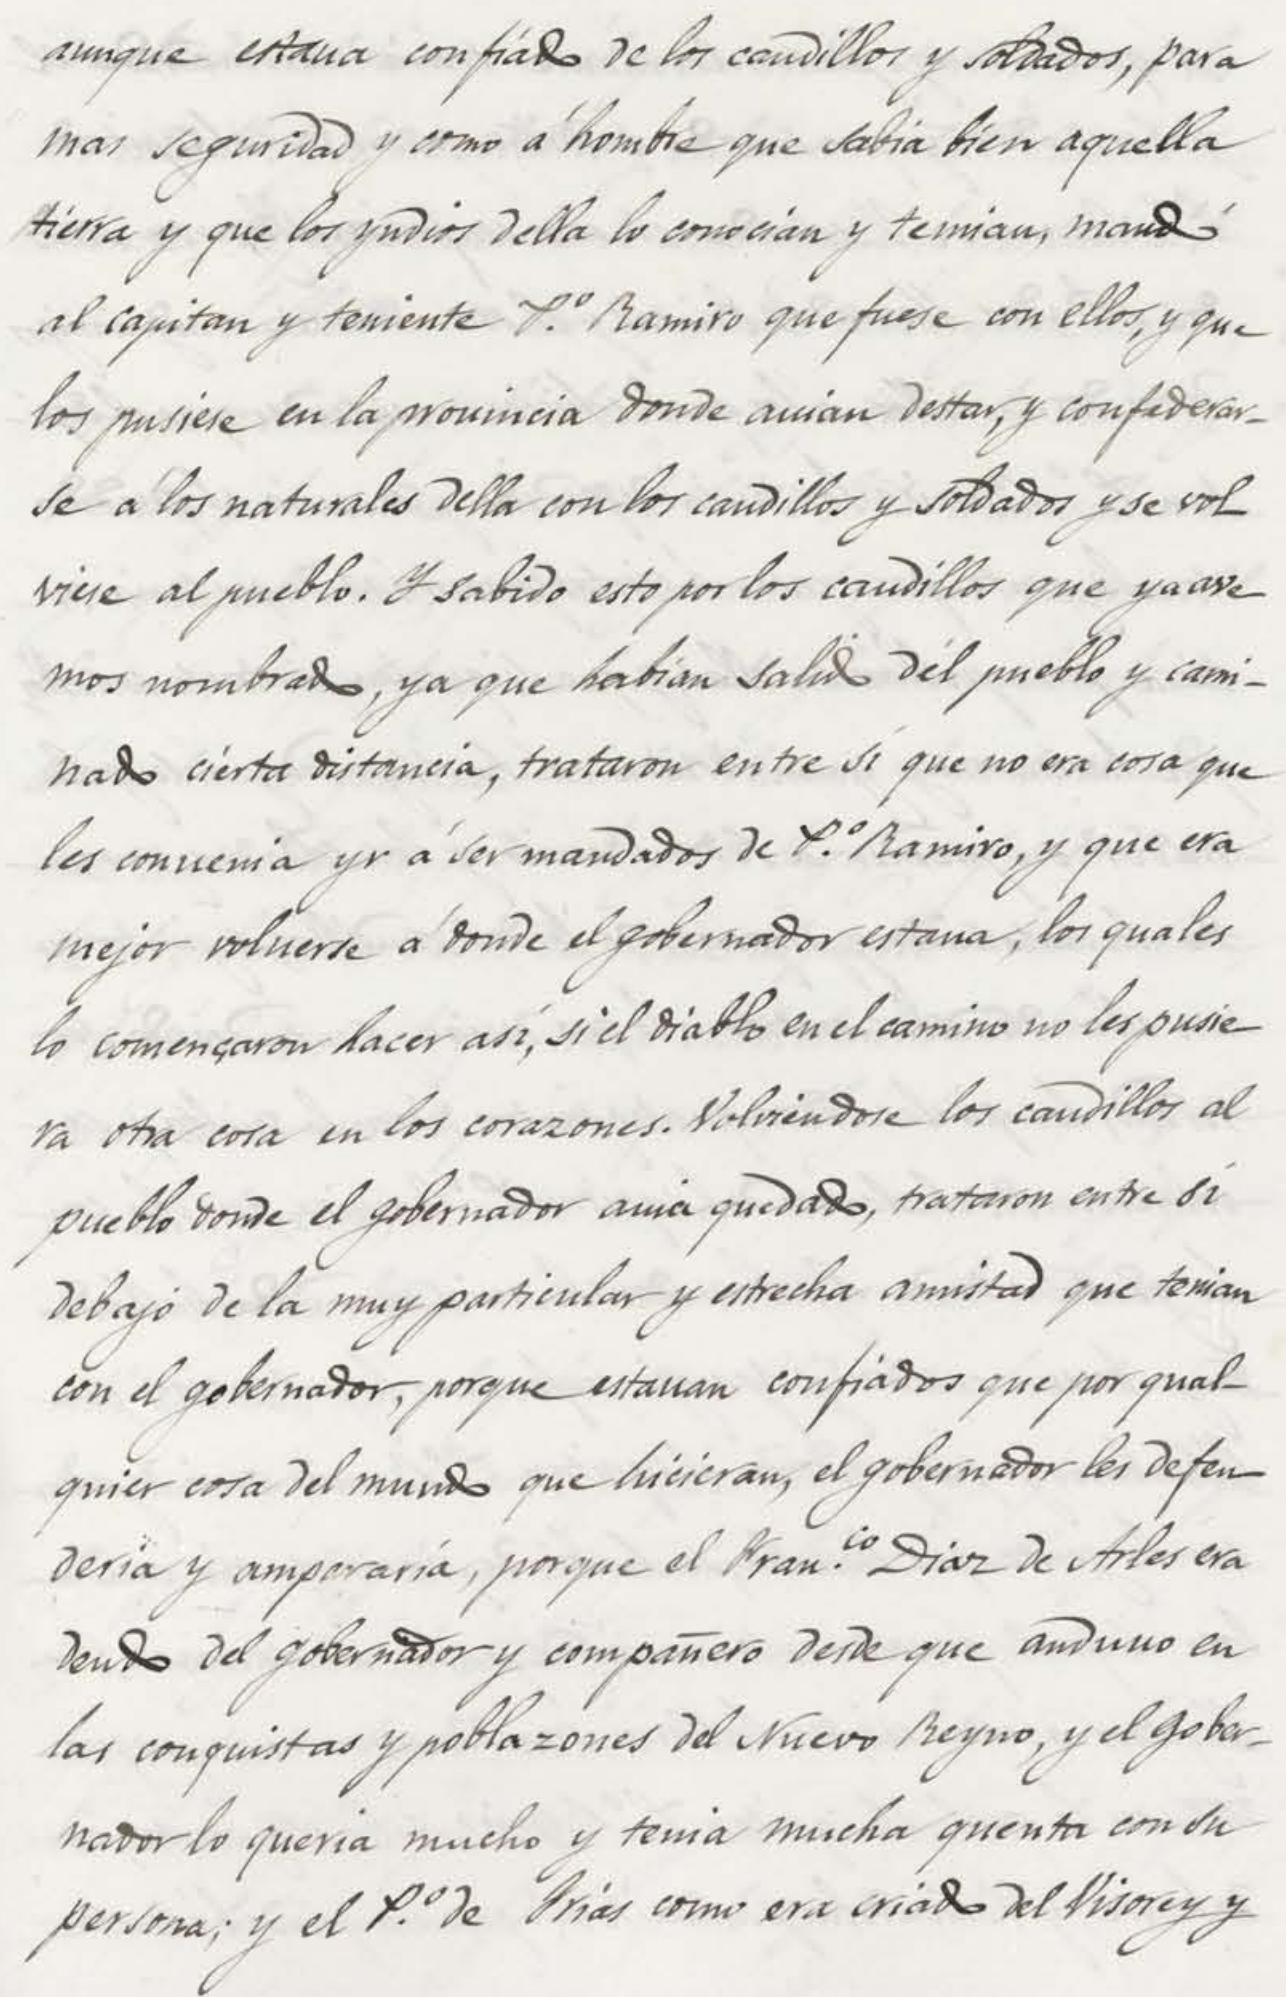 aunque estaua confiado de los caudillos y soldados, para
mas seguridad y como á hombre que sabia bien aquella
tierra y que los yndios della lo conocian y temian, mandó
al capitan y teniente P.º Ramiro que fuese con ellos, y que
los pusiese en la prouincia donde auian destar, y confederar-
se á los naturales della con los caudillos y soldados y se vol
viese al pueblo. Y sabido esto por los caudillos que ya ave
mos nombrado, ya que habian salido del pueblo y cami-
nado cierta distancia, trataron entre si que no era cosa que
les conuenia yr á ser mandados de P.º Ramiro, y que era
mejor voluerse á donde el gobernador estaua, los quales
lo començaron hacer asi, si el diablo en el camino no les pusie
ra otra cosa en los corazones. Volviendose los caudillos al
pueblo donde el gobernador auia quedado, trataron entre si
debajo de la muy particular y estrecha amistad que tenian
con el gobernador, porque estauan confiados que por qual-
quier cosa del mundo que hicieran, el gobernador les defen
deria y ampararia, porque el Fran.co Diaz de Arles era
deudo del gobernador y compañero desde que anduuo en
las conquistas y poblazones del Nuevo Reyno, y el gober-
nador lo queria mucho y tenia mucha quenta con su
persona; y el P.º de Frias como era criado del Visorey y